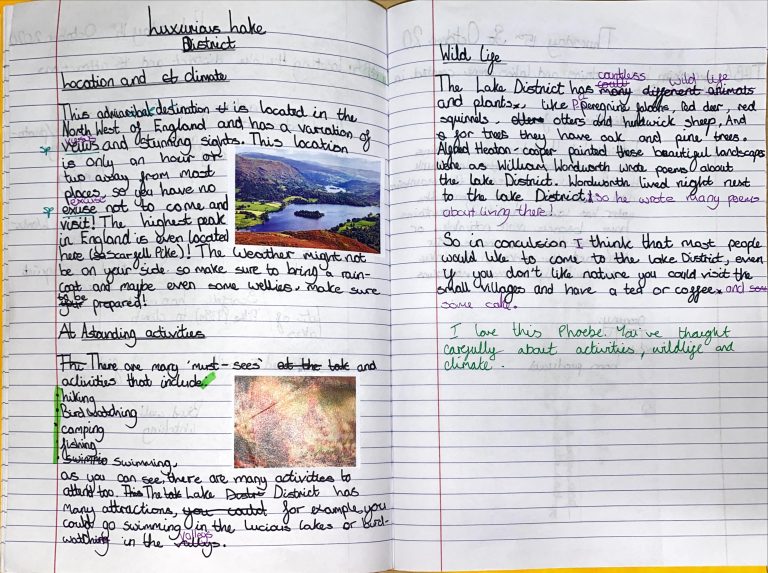 Luxurious Lake
District
Location and climate
This admirable destination is located in the
North West of England and has a variation of
views and stunning sights. This location
is only an hour or
two away from most
places, so you have no
excuse
exuse not to come and
visit! The highest peak
in England is even located
here (scarfell Pike)! The weather might not
be on your side so make sure to bring a rain-
coat and maybe even some wellies. Make sure
to be
prepared!
Astounding activities
There are many 'must-sees' and
activities that include
hiking
Bird watching
camping
fishing
swimming,
as you can see, there are many activities to
attend too. The Lake District has
many attractions, for example, you
could go swimming in the lucious lakes or bird-
watching in the valleys.
Wild Life
The Lake District has countless wild life
and plants, like Peregrine falcons, Red deer, red
squirrels, otters and hurdwick sheep, And
for trees they have oak and pine trees.
Alfred Heaton-cooper painted these beautiful landscapes
were as William Wordworth wrote poems about
the Lake District. Wordworth lived right next
to the lake District, so he wrote many poems
about living there!
So in conculsion I think that most people
would like to come to the lake District, even
if you don't like nature you could visit the
small villages and have a tea or coffee and
some cake.
I love this Phoebe. You've thought
carefully about activities, wildlife and
climate.